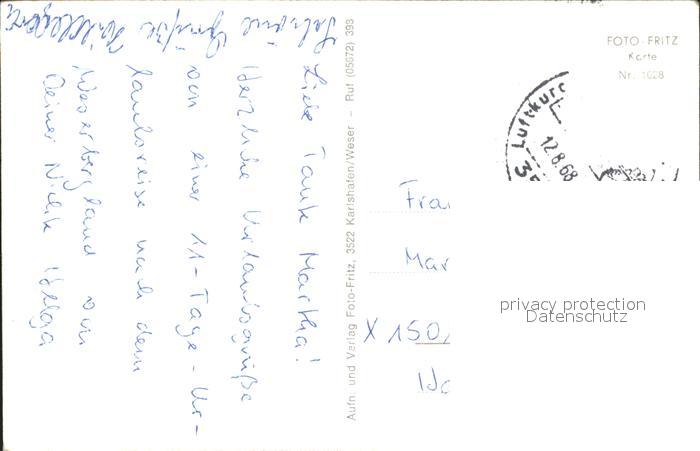 Liebe Tante Martha!
Herzliche Urlaubsgrüße
von einer 11-Tage-Ur-
laubsreise nach dem
Weserbergland von
Deiner Nichte Helga
Schöne Grüße
Aufn. und Verlag Foto-Fritz, 3522 Karlshafen/Weser – Ruf (05672) 393
FOTO-FRITZ
Karte
Nr. 1028
Luftkuro
12.8.68
35
Frau
Mar
X 150
privacy protection
Datenschutz